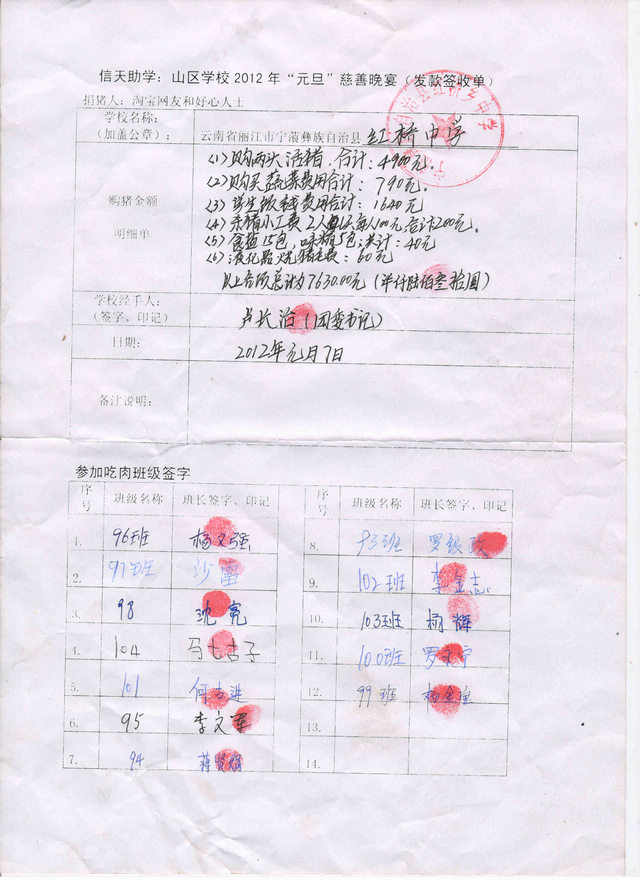 信天助学：山区学校2012年“元旦”慈善晚宴（发款签收单）
捐猪人：淘宝网友和好心人士
学校名称：
（加盖公章）：
云南省丽江市宁蒗彝族自治县 红桥中学
购猪金额
明细单
(1)购两头活猪，合计：4900元。
(2)购买蔬菜费用合计：790元。
(3)学生饭钱费用合计：1640
(4)杀猪小工费2人 每人100元合计200元。
(5)食盐15包，味精5包，共计：40元
(6)液化器火烧猪毛费：60元
以上各项总计为7630.00元（柒仟陆佰叁拾圆）
学校经手人：
（签字、印记）
卢长治（团委书记）
日期：
2012年元月7日
备注说明：
参加吃肉班级签字
序号 班级名称 班长签字、印记
1. 96班 杨文强
2. 97班 沙雷
3. 98 沈亮
4. 104 马七古子
5. 101 何志进
6. 95 李文军
7. 94 蒋贤娟
序号 班级名称 班长签字、印记
8. 93班 罗银
9. 102班 李金志
10. 103班 杨辉
11. 100班 罗
12. 99班 杨
13.
14.